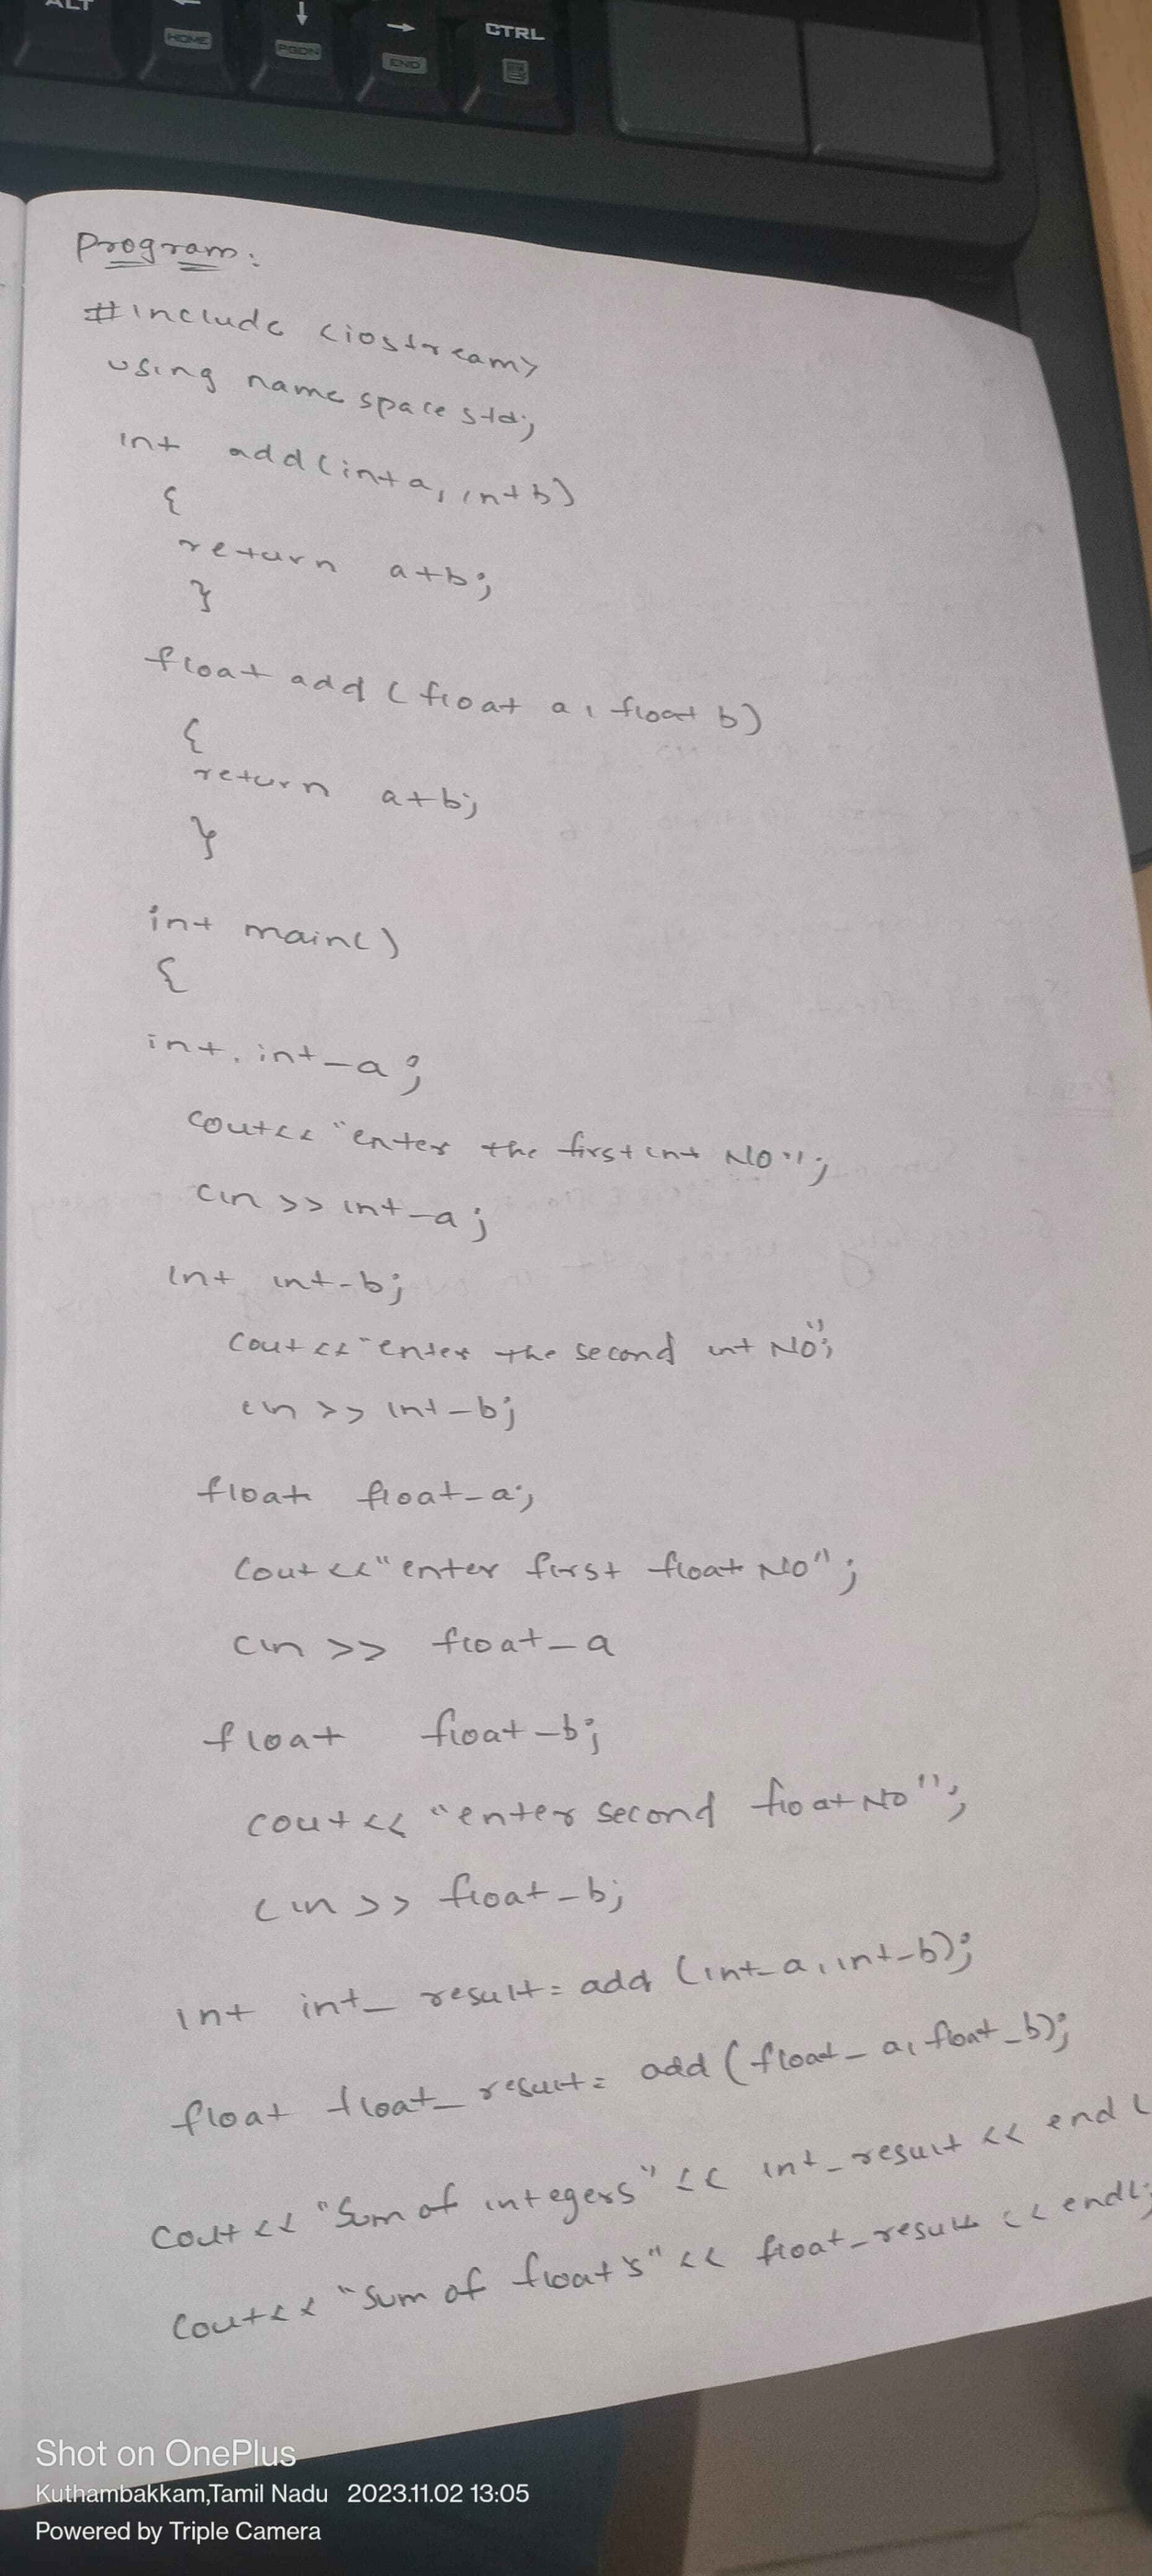 ALT
HOME
PGDN
END
CTRL
Program:
#include <iostream>
using namespace std;
int add(int a, int b)
{
return a+b;
}
float add (float a, float b)
{
return a+b;
}
int main()
{
int. int_a;
cout<< "enter the first int NO";
cin >> int_a;
int int-b;
cout << "enter the second int NO";
cin >> int_b;
float float_a;
cout << "enter first float NO";
cin >> float_a
float float_b;
cout << "enter second float NO";
cin >> float_b;
int int_result = add (int_a, int_b);
float float_result = add (float_a, float_b);
cout << "Sum of integers" << int_result << endl
cout<< "Sum of float's" << float_result << endl;
Shot on OnePlus
Kuthambakkam,Tamil Nadu 2023.11.02 13:05
Powered by Triple Camera